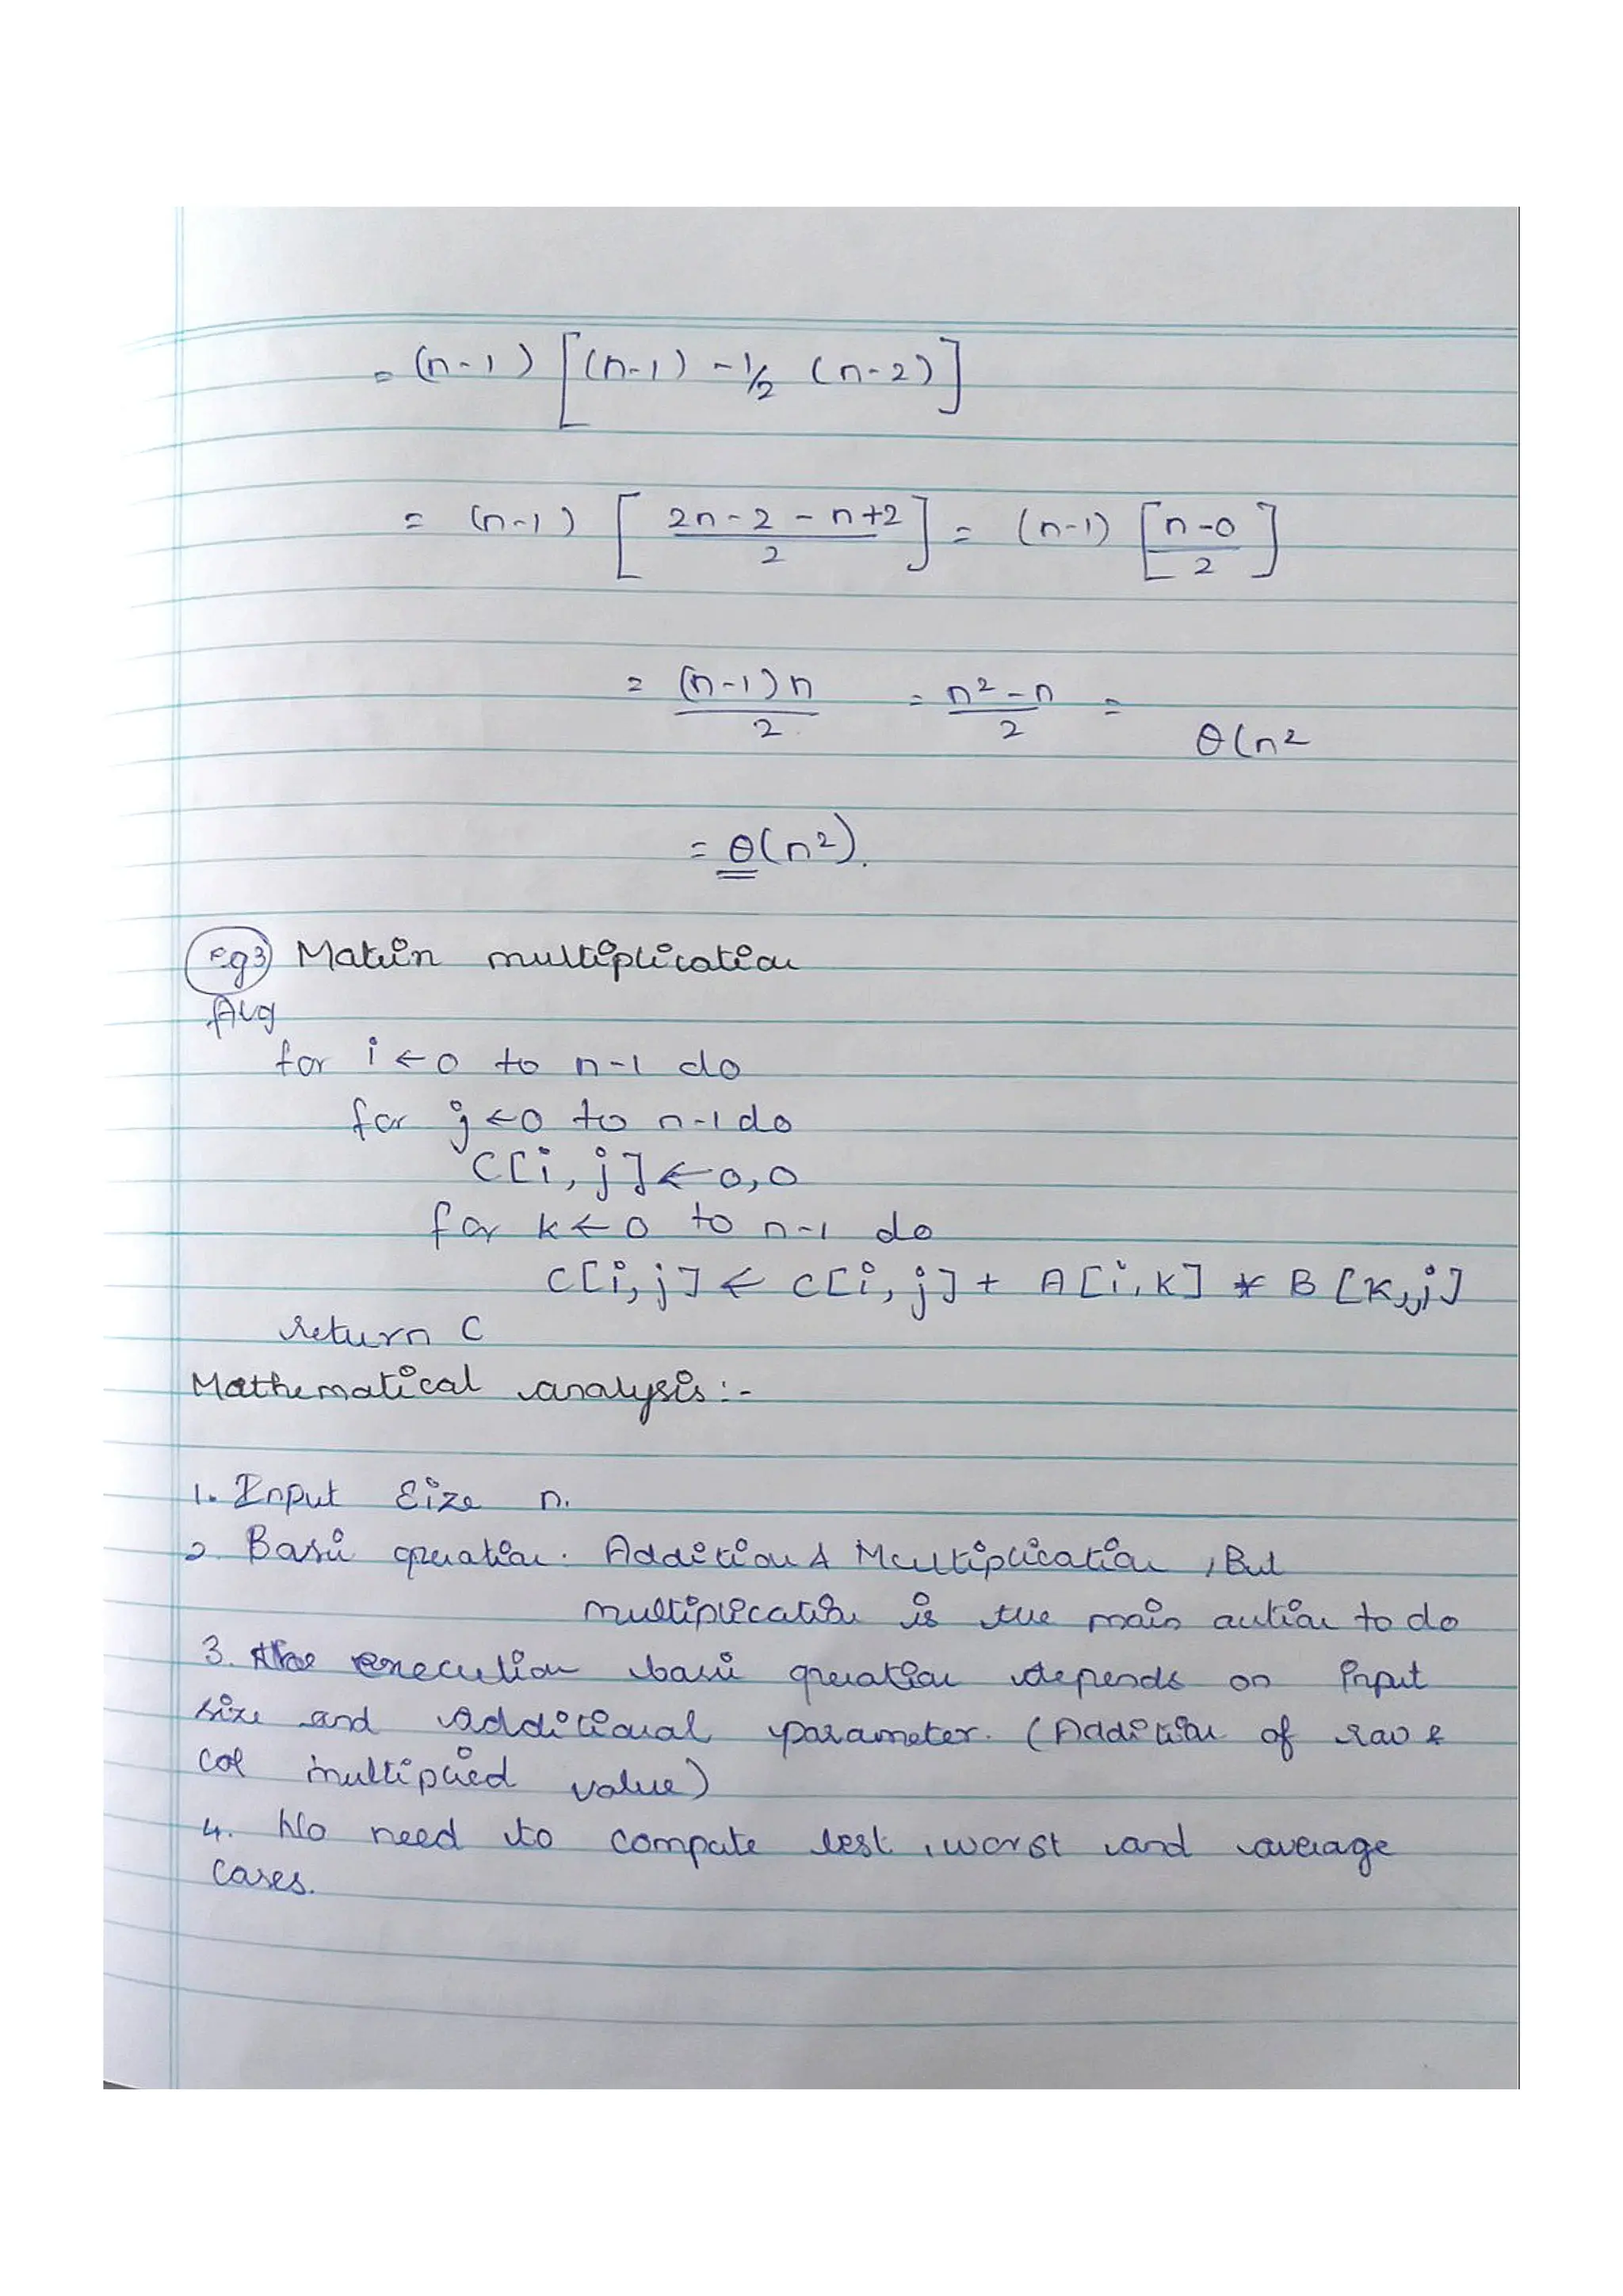 = (n-1) [(n-1) - 1/2 (n-2)]
= (n-1) [ (2n-2-n+2)/2 ] = (n-1) [ (n-0)/2 ]
= (n-1)n/2 = (n²-n)/2 =
θ(n²
= θ(n²).
Eg3 Matrix multiplication
Alg
for i ← 0 to n-1 do
for j ← 0 to n-1 do
C[i, j] ← 0,0
for k ← 0 to n-1 do
C[i, j] ← C[i, j] + A[i, K] * B [K, j]
return C
Mathematical analysis :-
1. Input Size n.
2. Basic operation. Addition & Multiplication, But
multiplication is the main action to do
3. The execution basic operation depends on input
size and additional parameter. (Addition of row &
col multiplied value)
4. No need to compute best, worst and average
cases.